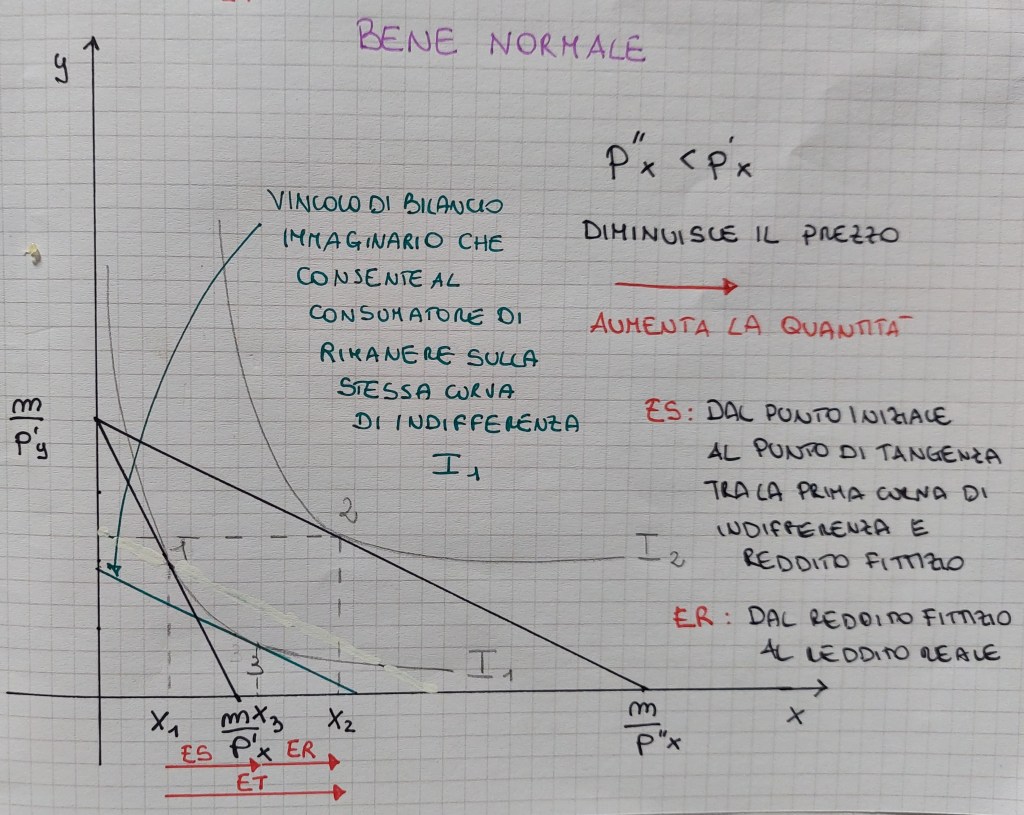 BENE NORMALE
y
P''x < P'x
VINCOLO DI BILANCIO
IMMAGINARIO CHE
CONSENTE AL
CONSUMATORE DI
RIMANERE SULLA
STESSA CURVA
DI INDIFFERENZA
I1
DIMINUISCE IL PREZZO
AUMENTA LA QUANTITÀ
m
P'y
ES: DAL PUNTO INIZIALE
AL PUNTO DI TANGENZA
TRA LA PRIMA CURVA DI
INDIFFERENZA E
REDDITO FITTIZIO
2
1
I2
ER: DAL REDDITO FITTIZIO
AL REDDITO REALE
3
I1
X1
m
P'x
X3
X2
m
P''x
x
ES
ER
ET